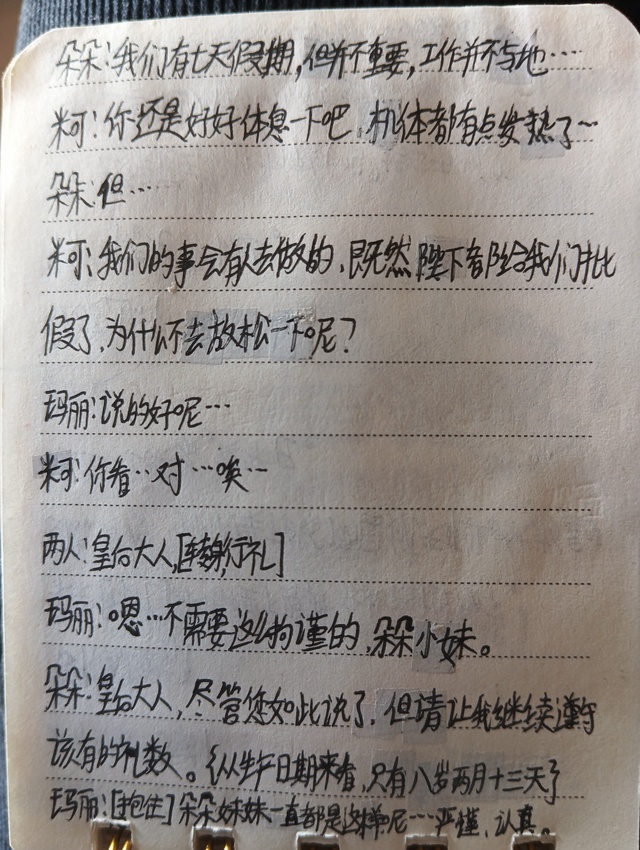 朵朵:我们有七天假期,但并不重要,工作并不与她…
米可:你还是好好休息一下吧,机体都有点发热了~
朵朵:但…
米可:我们的事会有人去做的,既然陛下都给我们批
假了,为什么不去放松一下呢?
玛丽:说的好呢…
米可:你看··对…唉··
两人:皇后大人,[转身行礼]
玛丽:嗯…不需要这么拘谨的,朵朵小妹。
朵朵:皇后大人,尽管您如此说了,但请让我继续遵守
该有的礼数。{从生产日期来看,只有八岁两月十三天}
玛丽:[抱住]朵朵妹妹一直都是这样呢…严谨、认真。